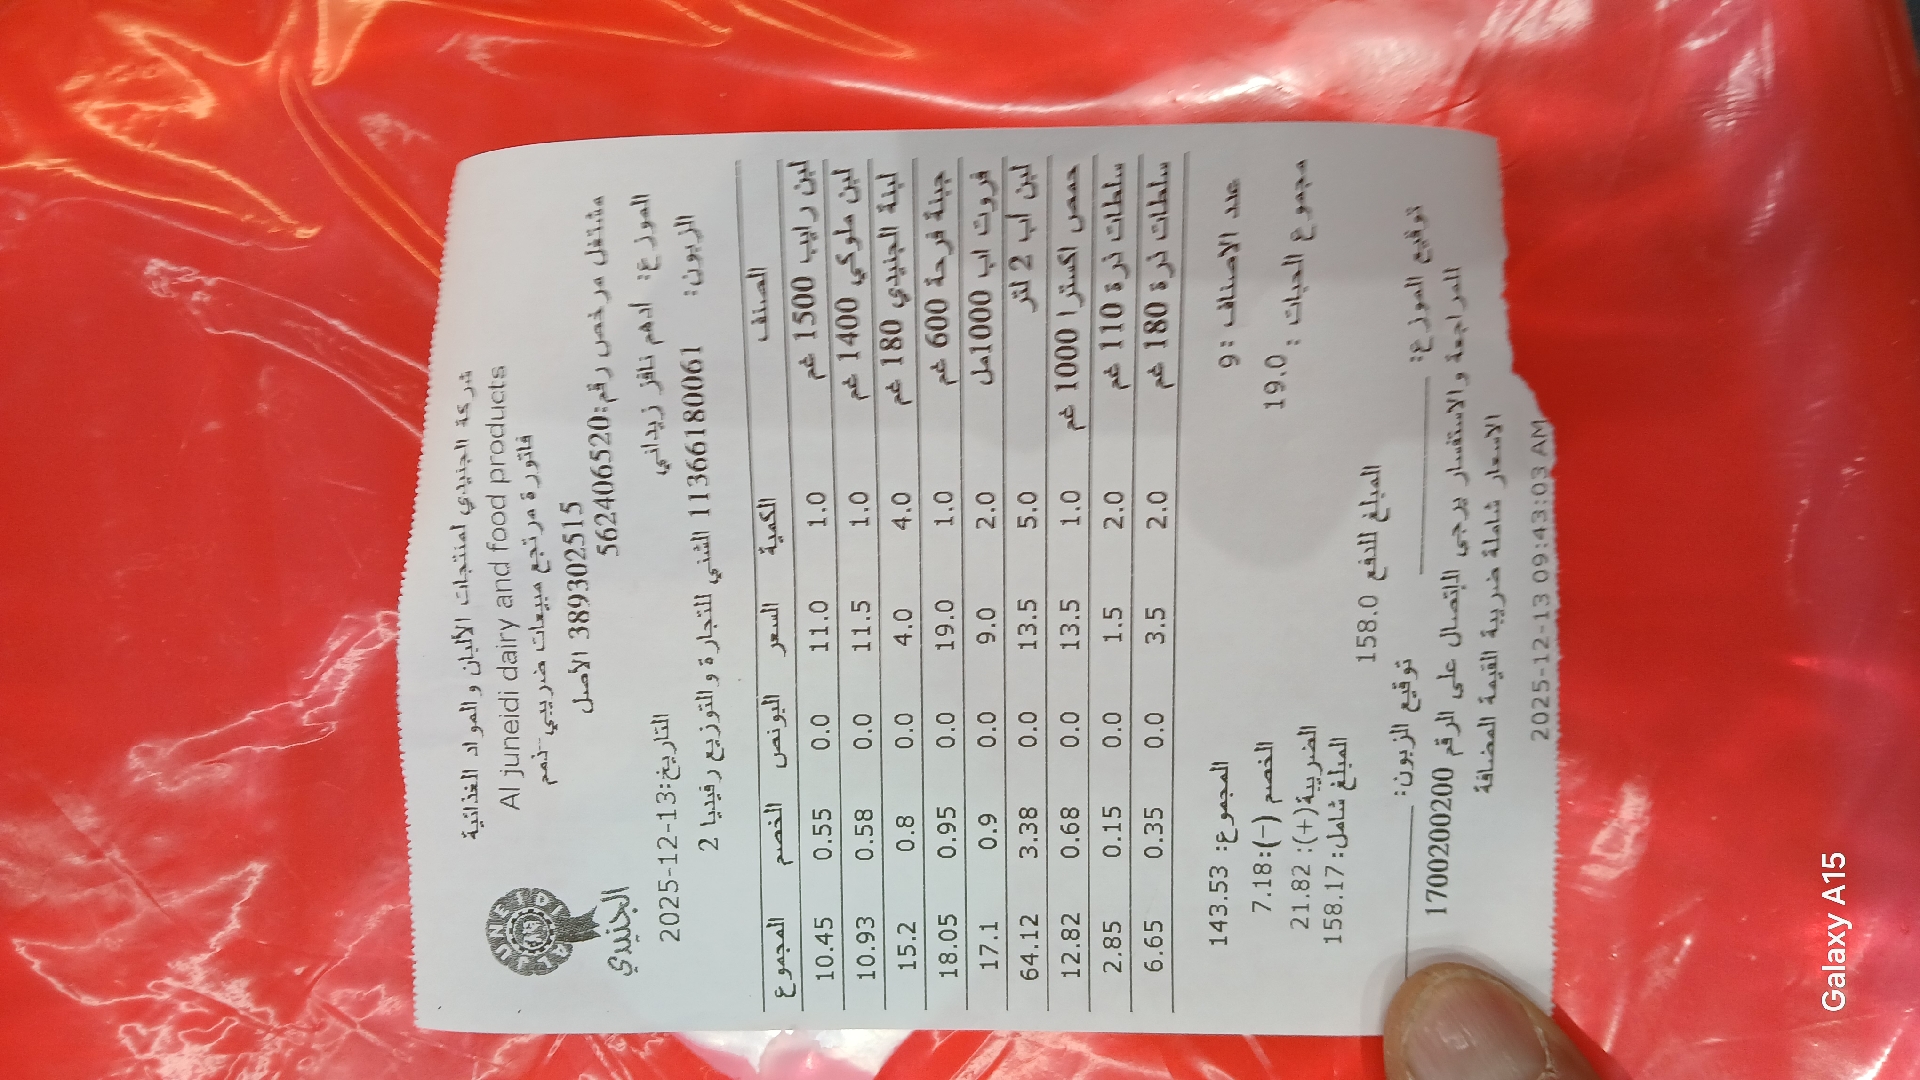 شركة الجنيدي لمنتجات الألبان و المواد الغذائية
Al juneidi dairy and food products
فاتورة مرتجع مبيعات ضريبي - ذمم
389302515 الأصل
مشتغل مرخص رقم:562406520
JUNEIDI
الجنيدي
الموزع: ادهم نافز زيداني
التاريخ:2025-12-13
الزبون: 11366180061 الشني للتجارة و التوزيع رفيديا 2
الصنف الكمية السعر البونص الخصم المجموع
لبن رايب 1500 غم 1.0 11.0 0.0 0.55 10.45
لبن ملوكي 1400 غم 1.0 11.5 0.0 0.58 10.93
لبنة الجنيدي 180 غم 4.0 4.0 0.0 0.8 15.2
جبنة فرحة 600 غم 1.0 19.0 0.0 0.95 18.05
فروت اب 1000مل 2.0 9.0 0.0 0.9 17.1
لبن اب 2 لتر 5.0 13.5 0.0 3.38 64.12
حمص اكسترا 1000 غم 1.0 13.5 0.0 0.68 12.82
سلطات ذرة 110 غم 2.0 1.5 0.0 0.15 2.85
سلطات ذرة 180 غم 2.0 3.5 0.0 0.35 6.65
عدد الاصناف :9
المجموع: 143.53
مجموع الحبات : 19.0
الخصم (-):7.18
الضريبة(+): 21.82
المبلغ شامل: 158.17
المبلغ للدفع 158.0
توقيع الموزع: ________
توقيع الزبون: ________
للمراجعة و الاستفسار يرجى الإتصال على الرقم 1700200200
الاسعار شاملة ضريبة القيمة المضافة
2025-12-13 09:43:03 AM
Galaxy A15